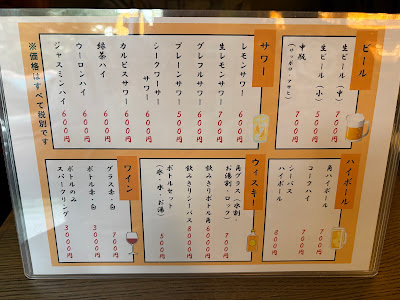 ビール
生ビール（中） 700円
生ビール（小） 500円
中瓶 700円
（サッポロ・アサヒ）
サワー
レモンサワー 600円
生レモンサワー 700円
グレフルサワー 600円
プレーンサワー 500円
シークワーサーサワー 600円
カルピスサワー 600円
緑茶ハイ 600円
ウーロンハイ 600円
ジャスミンハイ 600円
※価格はすべて税別です
ハイボール
角ハイボール 700円
コークハイ 700円
シーバスハイボール 800円
ウィスキー
角グラス（水割・お湯割・ロック） 700円
飲みきりボトル角
飲みきりシーバス
ボトルセット
（氷・水・お湯） 500円
ワイン
グラス赤・白 700円
ボトル赤・白 3000円
ボトルのみ
スパークリング 3000円